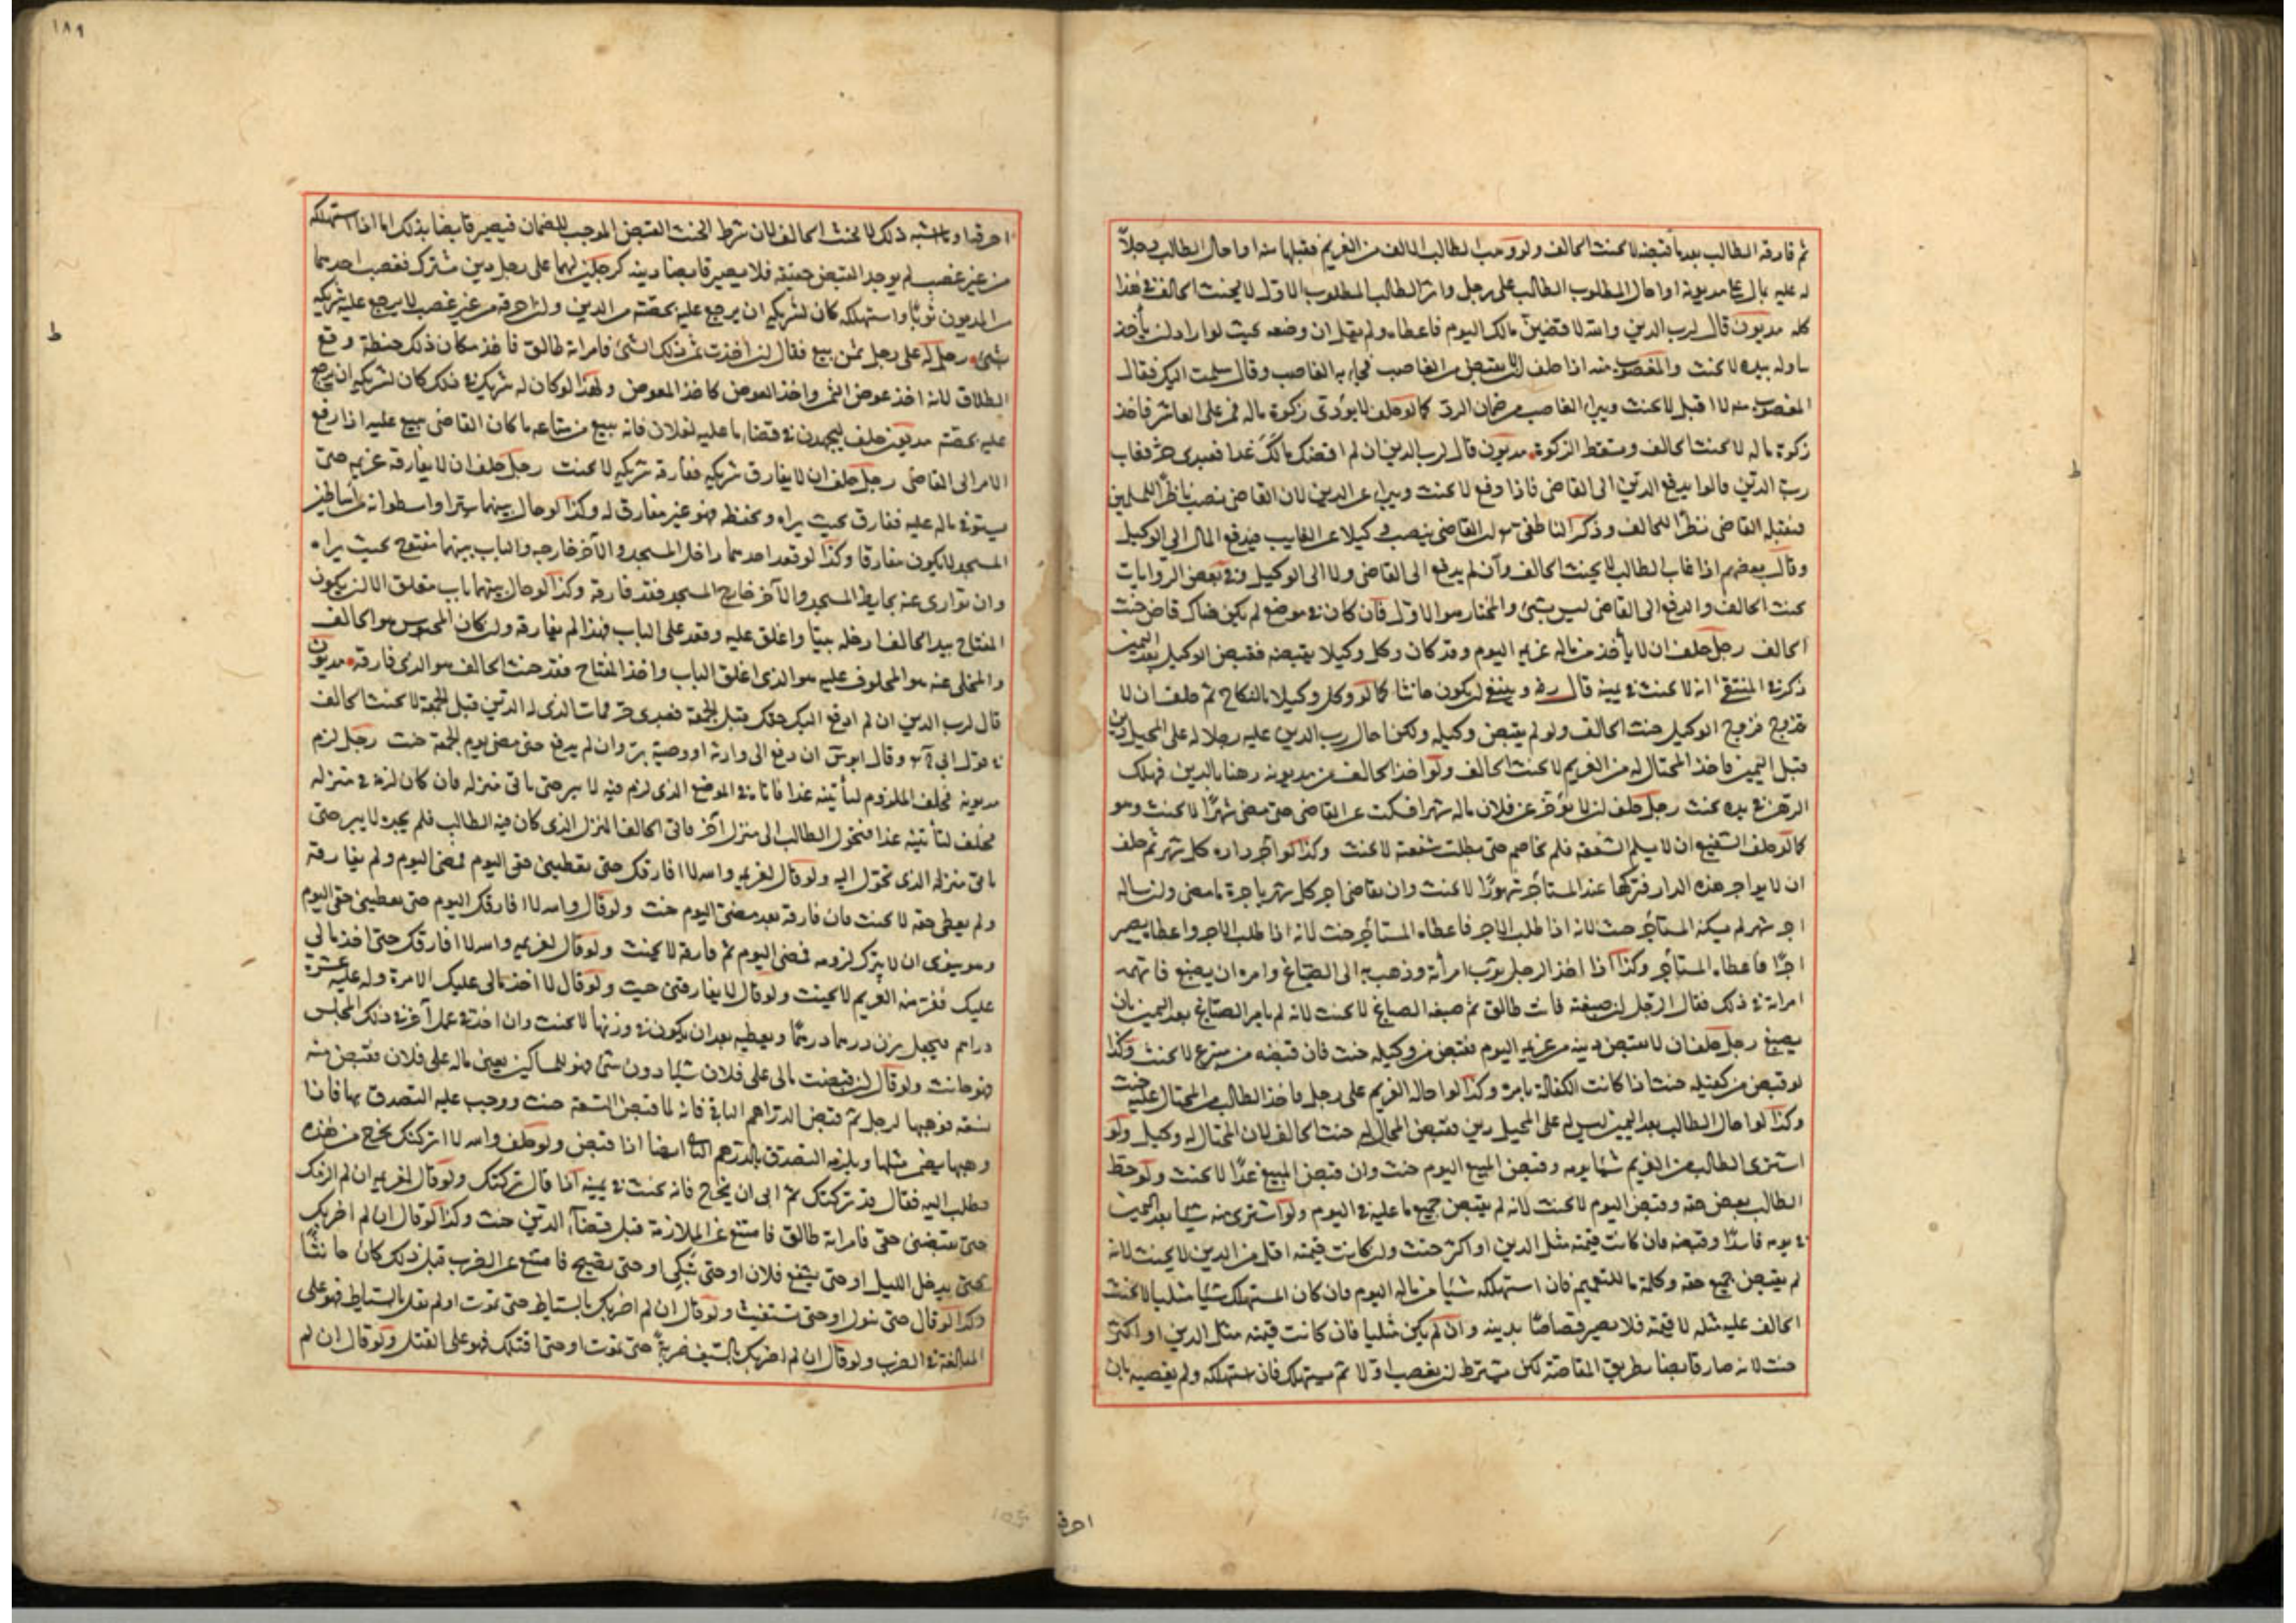 ثم فارقه الطالب بعد ما قبضه لا يحنث الحالف ولو وهب الطالب المالف من الغريم فقبلها منه او احال الطالب رجلا
له عليه مال على مديونه او احال المطلوب الطالب على رجل وابرأ الطالب المطلوب الاول لا يحنث الحالف في هذا
كله مديون قال لرب الدين والله لاقضين مالك اليوم فاعطاه ولم يقبل ان وضعه بحيث لو اراد ان يأخذ
تناوله بيده لا يحنث والمغصوب منه اذا حلف ان لا يقبض من الغاصب فجاء به الغاصب وقال سلمت اليك فقال
المغصوب منه لا اقبل لا يحنث ويبراء الغاصب من ضمان الرد كما لو حلف لا يؤدى زكوة ماله فمر على العاشر فاخذ
زكوة ماله لا يحنث الحالف وسقط الزكوة مديون قال لرب الدين ان لم اقضك مالك غدا فعبدى حر فغاب
رب الدين قالوا يدفع الدين الى القاضى فاذا دفع لا يحنث ويبراء عن الدين لان القاضى نصب ناظرا للمسلمين
فيقبل القاضى نظرا للحالف وذكر الناطفى ان القاضى ينصب وكيلا عن الغايب فيدفع المال الى الوكيل
وقال بعضهم اذا غاب الطالب لا يحنث الحالف وان لم يدفع الى القاضى ولا الى الوكيل وفي بعض الروايات
يحنث الحالف والدفع الى القاضى ليس بشئ والمختار هو الاول فان كان في موضع لم يكن هناك قاض حنث
الحالف رجل حلف ان لا يأخذ من ماله غريمه اليوم وقد كان وكل وكيلا بقبضه فقبض الوكيل بعد اليمين
ذكر في المنتقى انه لا يحنث في يمينه قال رضه وينبغى ان يكون حانثا كما لو وكل وكيلا بالنكاح ثم حلف ان لا
يتزوج فزوج الوكيل حنث الحالف ولو لم يقبض وكيله ولكن احال رب الدين عليه رجلا له على المحيل دين
قبل اليمين فاخذ المحتال له من الغريم لا يحنث الحالف ولو اخذ الحالف من مديونه رهنا بالدين فهلك
الرهن في يده يحنث رجل حلف ان لا يؤخر عن فلان ماله شهرا فسكت عن القاضى حتى مضى شهرا لا يحنث وهو
كما لو حلف الشفيع ان لا يسلم الشفعة فلم يخاصم حتى بطلت شفعته لا يحنث وكذا لو آجر داره كل شهر ثم حلف
ان لا يواجر هذه الدار فتركها عند المستأجر شهورا لا يحنث وان تقاضى اجر كل شهر باجرة ما مضى وان ساله
اجر شهر لم يسكنه المستأجر حنث لانه اذا طلب الاجر فاعطاه المستأجر حنث لانه اذا طلب الاجر واعطاه يصير
اجرا فاعطاه المستأجر وكذا اذا اخذ الرجل ثوب امرأته وذهب به الى الصباغ وامره ان يصبغ فاتهمته
امراته في ذلك فقال الرجل ان صبغته فانت طالق ثم صبغه الصباغ لا يحنث لانه لم يأمر الصباغ بعد اليمين بان
يصبغ رجل حلف ان لا يقبض دينه من غريمه اليوم فقبض من وكيله حنث فان قبضه من متبرع لا يحنث وكذا
لو قبض من كفيله حنث اذا كانت الكفالة بامره وكذا لو احاله الغريم على رجل فاخذ الطالب من المحتال عليه حنث
وكذا لو احال الطالب بعد اليمين ليس له على المحيل دين فقبض المحال له حنث الحالف لان المحتال له وكيل ولو
اشترى الطالب من الغريم شيئا بدينه وقبض المبيع اليوم حنث وان قبض المبيع غدا لا يحنث ولو حط
الطالب بعض حقه وقبض اليوم لا يحنث لانه لم يقبض جميع ما عليه في اليوم ولو اشترى منه شيا بعد اليمين
في يومه فاسدا وقبضه فان كانت قيمته مثل الدين او اكثر حنث وان كانت قيمته اقل من الدين لا يحنث لانه
لم يقبض جميع حقه وكلمة ما للتعميم فان استهلكه شيا من ماله اليوم فان كان المستهلك شيا مثليا لا يحنث
الحالف عليه مثله لا قيمته فلا يصير قصاصا بدينه وان لم يكن مثليا فان كانت قيمته مثل الدين او اكثر
حنث لانه صار قابضا بطريق المقاصة لكن يشترط ان يغصب اولا ثم يستهلك فان استهلكه ولم يغصبه بان
احرقها
١٨٩
احرقها وما اشبه ذلك لا يحنث الحالف لان شرط الحنث القبض الموجب للضمان فيصير قابضا بذلك اما اذا استهلكه
من غير غصب لم يوجد القبض حقيقة فلا يصير قابضا دينه كرجلين لهما على رجل دين مشترك فغصب احدهما
من المديون ثوبا واستهلكه كان لشريكه ان يرجع عليه بحصته من الدين وان احرقه من غير غصب لا يرجع عليه شريكه
بشئ رجل له على رجل ثمن بيع فقال ان اخذت ثمن ذلك الشئ فامراته طالق فاخذ مكان ذلك حنطة وقع
الطلاق لانه اخذ عوض الثمن واخذ العوض كاخذ المعوض ولهذا لو كان له شريك في ذلك كان لشريكه ان يرجع
عليه بحصته مديون حلف ليجهدن في قضاء ما عليه لفلان فانه يبيع من متاعه ما كان القاضى يبيع عليه اذا رفع
الامر الى القاضى رجل حلف ان لا يفارق شريكه ففارقه شريكه لا يحنث رجل حلف ان لا يفارقه غريمه حتى
يستوفى ماله عليه ففارق بحيث يراه ويحفظه فهو غير مفارق له وكذا لو حال بينهما ستر او اسطوانة من اساطين
المسجد لا يكون مفارقا وكذا لو قعد احدهما داخل المسجد والآخر خارجه والباب بينهما مفتوح بحيث يراه
وان توارى عنه بحايط المسجد والآخر خارج المسجد فقد فارقه وكذا لو حال بينهما باب مغلق الا ان يكون
المفتاح بيد الحالف ادخله بيتا واغلق عليه وقعد على الباب فهذا لم يفارقه وان كان المحبوس هو الحالف
والمخلى عنه هو المحلوف عليه هو الذى اغلق الباب واخذ المفتاح فقد حنث الحالف هو الذى فارقه مديون
قال لرب الدين ان لم ادفع اليك حقك قبل الجمعة فعبدى حر فمات الذى له الدين قبل الجمعة لا يحنث الحالف
في قول ابى وقال ابو يس ان دفع الى وارثه او وصيه بر وان لم يدفع حتى مضى يوم الجمعة حنث رجل لزم
مديونه فحلف الملزوم ليأتينه غدا فاتاه في الموضع الذى لزم فيه لا يبر حتى ياتى منزله فان كان لزمه في منزله
فحلف لياتينه غدا فتحول الطالب الى منزل آخر فاتى الحالف المنزل الذى كان فيه الطالب فلم يجده لا يبر حتى
ياتى منزله الذى تحول اليه ولو قال لغريمه والله لا افارقك حتى تعطينى حقى اليوم فمضى اليوم ولم يفارقه
ولم يعطى حقه لا يحنث فان فارقه بعد مضى اليوم حنث ولو قال والله لا افارقك اليوم حتى تعطينى حقى اليوم
وهو ينوى ان لا يترك لزومه فمضى اليوم ثم فارقه لا يحنث ولو قال لغريمه والله لا افارقك حتى اخذ مالى
عليك ففر منه الغريم لا يحنث ولو قال لا يفارقنى حنث ولو قال لا اخذ مالى عليك الا مرة وله عليه عشرة
دراهم فجعل يزن درهما درهما ويعطيه بعد ان يكون في وزنها لا يحنث وان اخذ في عمل آخر في ذلك المجلس
فهو حانث ولو قال ان قبضت مالى على فلان شيا دون شئ فهو للمساكين يعنى ماله على فلان فقبض منه
تسعة فوهبها لرجل ثم قبض الدراهم الباقى فانه لما قبض التسعة حنث ووجب عليه التصدق بها فاذا
وهبها يضمن مثلها ويلزمه التصدق بالدرهم الباقى ايضا اذا قبض ولو حلف والله لا اتركك تخرج من هذه
فطلب اليه فقال قد تركتك ثم ابى ان يخرج فانه يحنث في يمينه لما قال تركتك ولو قال لغريمه ان لم الزمك
حتى تقضينى حقى فامراته طالق فامتنع عن الملازمة قبل قضاء الدين حنث وكذا لو قال ان لم اضربك
حتى يدخل الليل او حتى يشفع فلان او حتى تبكى او حتى تصيح فامتنع عن الضرب قبل ذلك كان حانثا
وكذا لو قال حتى تبول او حتى تستغيث ولو قال ان لم اضربك بالسياط حتى تموت او لم يقل بالسياط فهو على
المبالغة في الضرب ولو قال ان لم اضربك بالسيف ضربة حتى تموت او حتى اقتلك فهو على القتل ولو قال ان لم